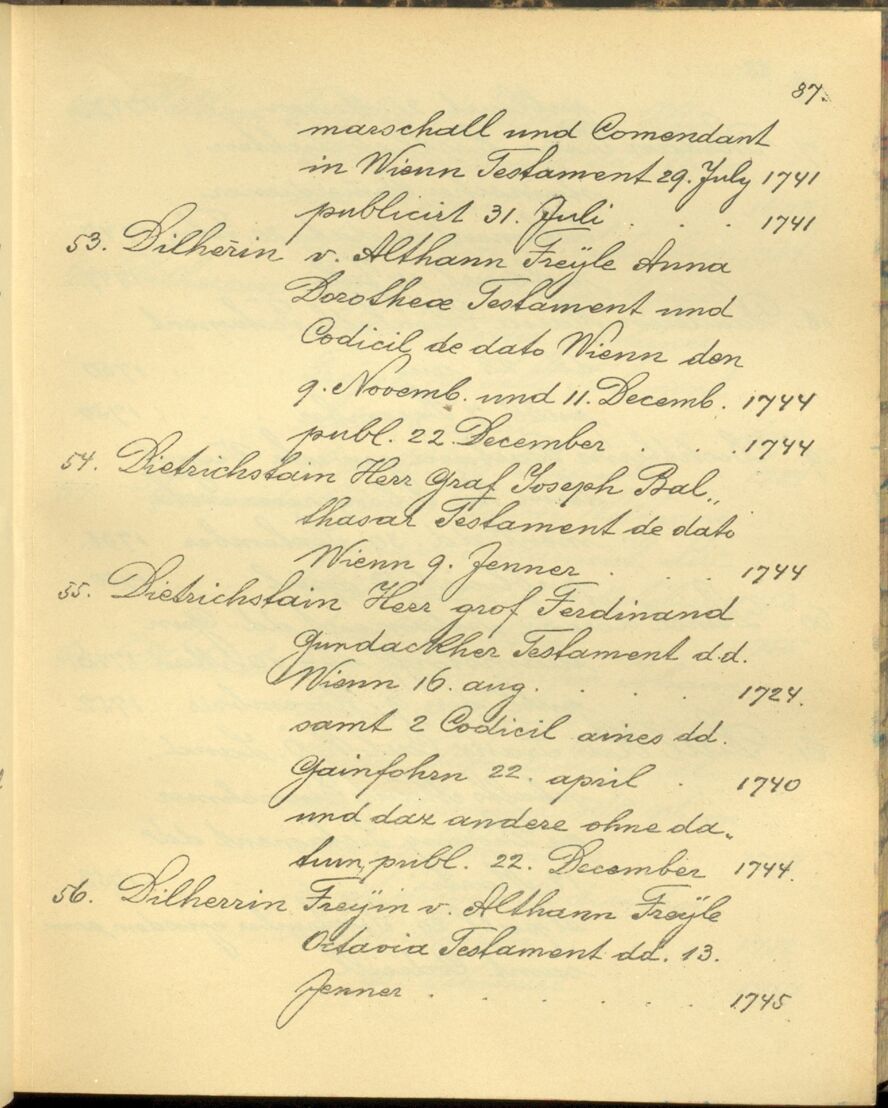 87.
marschall und Comendant
in Wienn Testament 29. July 1741
publicirt 31. Juli . . . 1741
53. Dilherin v. Althann Freÿle Anna
Dorotheæ Testament und
Codicil de dato Wienn den
9. Novemb. und 11. Decemb. 1744
publ. 22. December . . . 1744
54. Dietrichstain Herr Graf Joseph Bal„
thasar Testament de dato
Wienn 9. Jenner . . . 1744
55. Dietrichstain Herr grof Ferdinand
Gundackher Testament d.d.
Wienn 16. aug. . . . . 1724.
samt 2 Codicil aines dd.
Gainfohrn 22. april . 1740
und daz andere ohne da„
tum, publ. 22. December 1744.
56. Dilherrin Freÿin v. Althann Freÿle
Octavia Testament dd. 13.
Jenner . . . . . . 1745